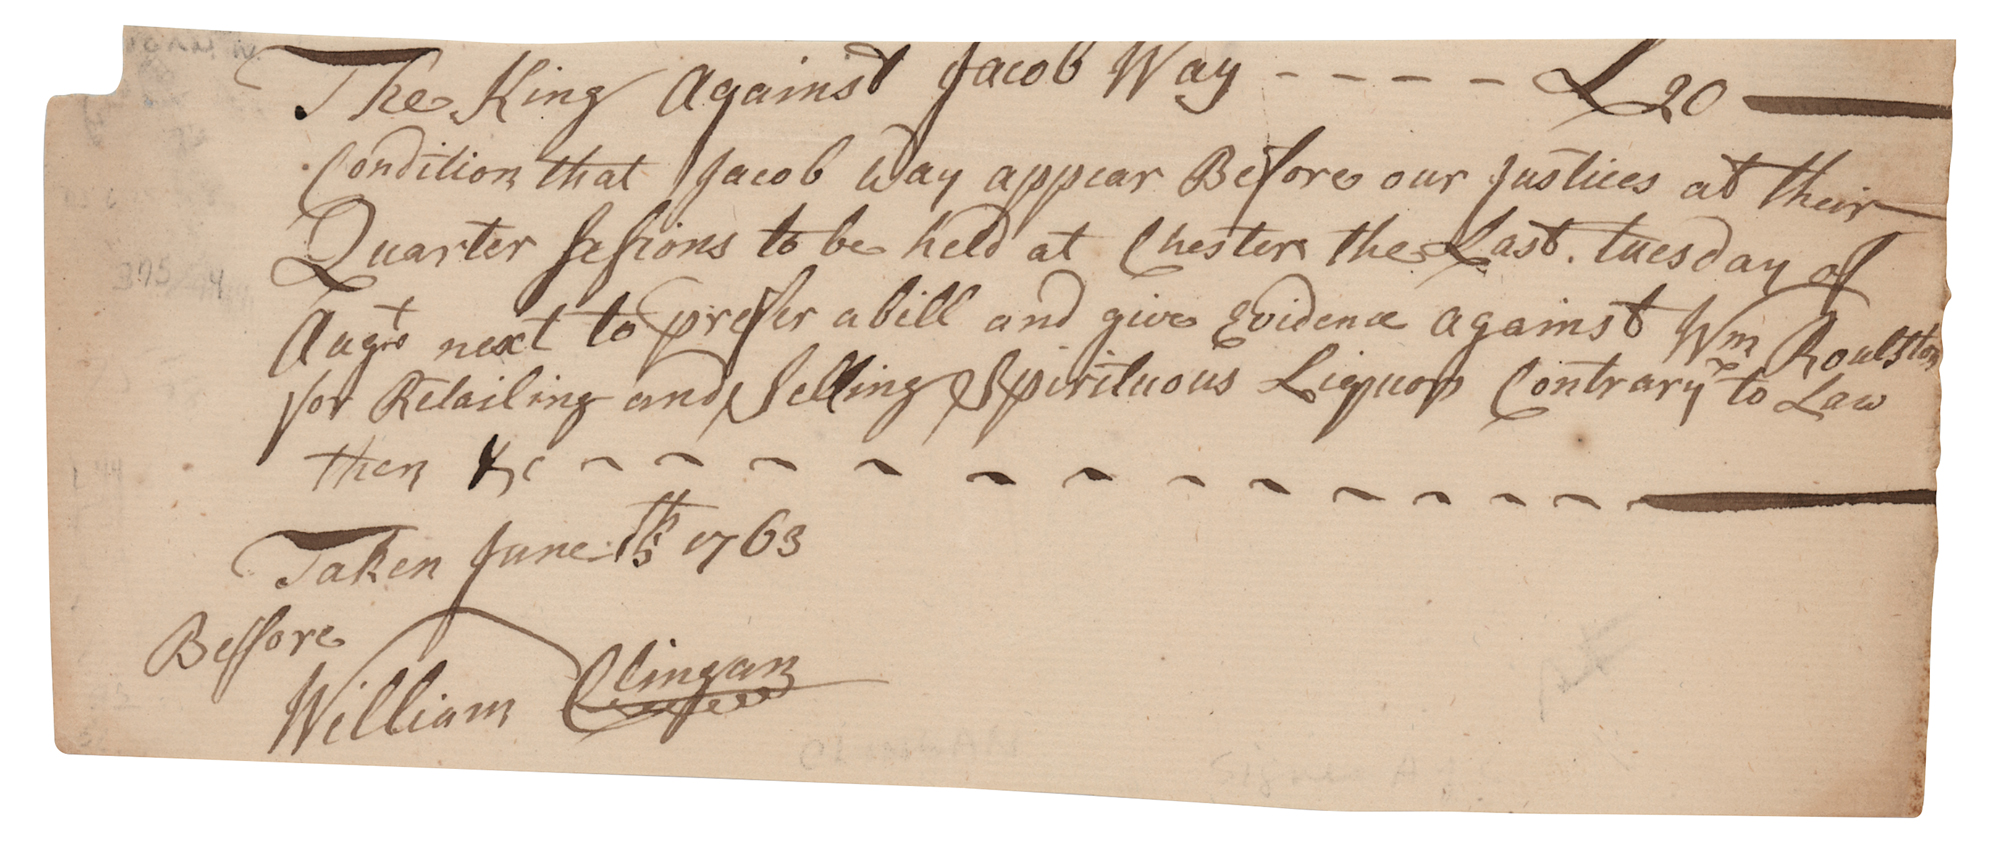 The King Against Jacob Way - - - - £20
Condition that Jacob Way appear Before our Justices at their
Quarter Sessions to be held at Chester the Last tuesday of
Augt next to prefer a bill and give Evidence against Wm Roulston
for Retailing and Selling Spirituous Liquors Contrary to Law
then &c
Taken June 1763
Beffore
William Clingan
375